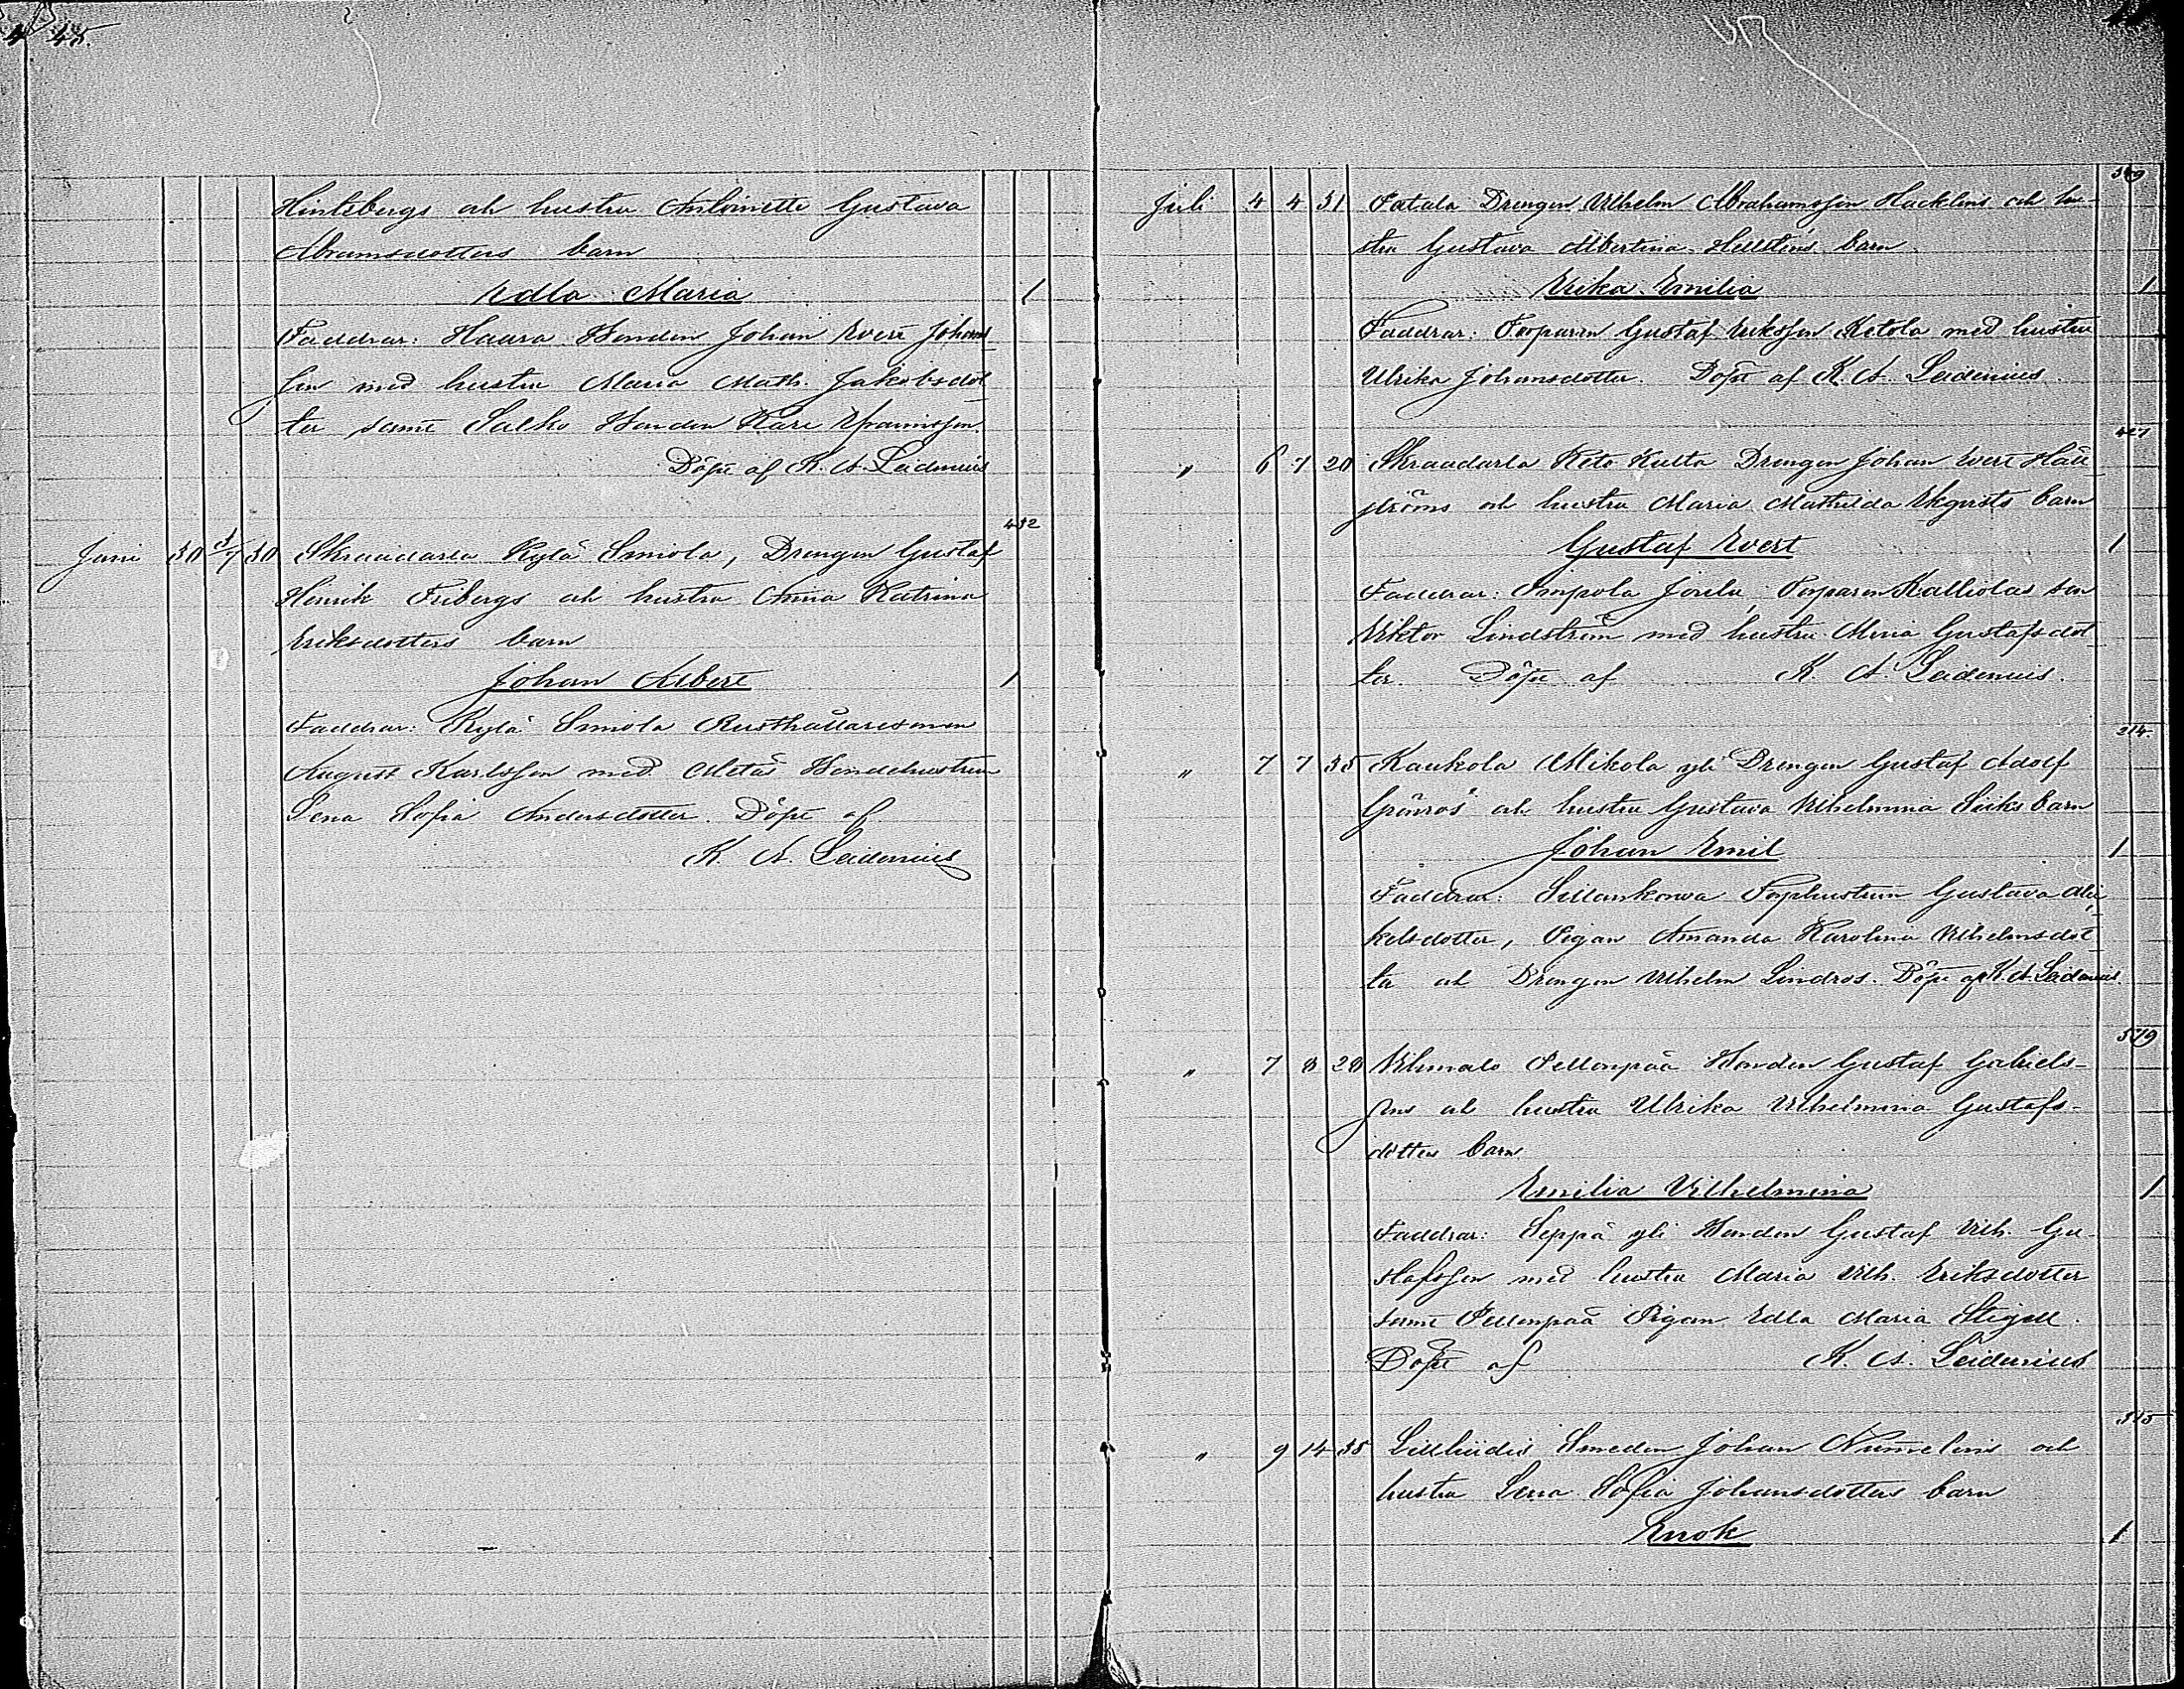 45.
Hintzbergs och hustru Antoinette Gustava
Abramsdotters barn
Edla Maria 1
Faddrar: Haura Bonden Johan Evert Johans
son med hustru Maria Math. Jakobsdot
ter samt Salko Bonden Karl Efraimsson.
Döpt af K. A. Leidenius
432
Juni 30 3/7 30 Skraadarla Kylä Smiola, Drengen Gustaf
Henrik Fribergs och hustru Anna Katrina
Eriksdotters barn
Johan Albert 1
Faddrar: Kylä Smiola Rusthållaresonen
August Karlsson med Bondehustrun
Lena Sofia Andersdotter. Döpt af
K. A. Leidenius
Juli 4 4 31 Patala Drengen Vilhelm Abrahamsson Hacklins och hu-
stru Gustava Albertina Hellstens barn
Erika Emilia 1
Faddrar: Torparen Gustaf Eriksson Ketola med hustru
Ulrika Johansdotter. Döpt af K. A. Leidenius.
427
" 6 7 20 Skraadarla Keto Kulta Drengen Johan Evert Häll
ströms och hustru Maria Mathilda Ekqvists barn
Gustaf Evert 1
Faddrar: Impola Torparen Kalliolas son
Viktor Lindström med hustru Gustafsdot
ter. Döpt af K. A. Leidenius.
214.
" 7 7 35 Kaukola Mikola yli Drengen Gustaf Adolf
Grönros' och hustru Gustava Vilhelmina barn
Johan Emil 1
Faddrar: Sillankorva Torphustrun Gustava Mi
kelsdotter, Pigan Amanda Karolina Vilhelmsdot
ter och Drengen Vilhelm Lindros. Döpt af K. A. Leidenius.
579
" 7 8 28 Vihmalo Pellonpää Bonden Gustaf Gabriels-
sons och hustru Ulrika Vilhelmina Gustafs-
dotters barn
Emilia Vilhelmina 1
Faddrar: Seppä yli Bonden Gustaf Vilh. Gu-
stafsson med hustru Maria Vilh. Eriksdotter
samt Pellonpää Pigan Edla Maria Stigell.
Döpt af K. A. Leidenius
515
" 9 14 35 Smeden Johan Nummelins och
hustru Lena Sofia Johansdotters barn
Enok 1